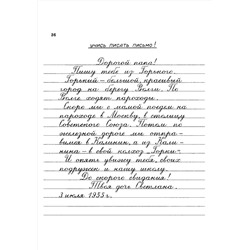 26
УЧИСЬ ПИСАТЬ ПИСЬМО!
Дорогой папа!
Пишу тебе из Горького.
Горький – большой, красивый
город на берегу Волги. По
Волге ходят пароходы.
Скоро мы с мамой поедем на
пароходе в Москву, в столицу
Советского Союза. Потом по
железной дороге мы отпра-
вимся в Калинин, а из Кали-
нина – в свой колхоз „Горки".
И опять увижу тебя, своих
подружек и нашу школу.
До скорого свидания!
Твоя дочь Светлана.
3 июля 1955 г.